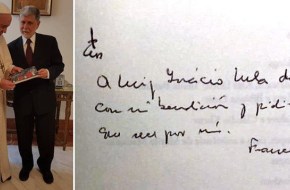 A Luiz Inácio Lula d
con mi bendición y pidi
que rece por mí.
Franc